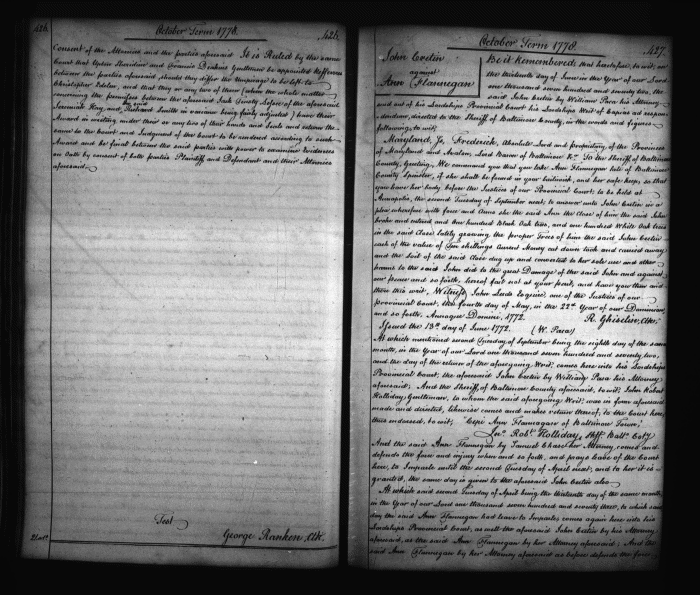 426.
October Term 1778.
426.
Consent of the Attornies and the parties aforesaid It is Ruled by the same
Court that Upton Sheridine and Gentlemen be appointed Referrees
between the parties aforesaid, should they differ the Umpirage to be left to
Christopher and that they or any two of them (when the whole matter
concerning the premises between the aforesaid County before of the aforesaid
and Richard Smith in variance being fairly adjusted) have their
Award in writing under their or any two of their hands and Seals and return the
same to the Court and Judgment of the Court to be rendered according to such
Award and be final between the said parties with power to examine Evidences
on Oath by consent of both parties Plaintiff and Defendant and their Attornies
aforesaid.
Test
George Ranken, Clk.
October Term 1778.
427.
John Cretin
against
Ann Flannegan
Be it Remembered that heretofore, to wit, on
the thirteenth day of June in the Year of our Lord
one thousand seven hundred and seventy two, the
said John Cretin by William Paca his Attorney
sued out of his Lordships Provincial Court his Lordships Writ of Capias ad respon-
dendum, directed to the Sheriff of Baltimore County, in the words and figures
following, to wit;
Maryland, Ss, Frederick, Absolute Lord and proprietary of the Provinces
of Maryland and Avalon, Lord Baron of Baltimore &c. To the Sheriff of Baltimore
County, greeting, We command you that you take Ann Flannegan late of Baltimore
County Spinster, if she shall be found in your bailiwick, and her safe keep, so that
you have her body before the Justices of our Provincial Court, to be held at
Annapolis, the second Tuesday of September next, to answer unto John Cretin in a
plea wherefore with force and Arms she the said Ann the Close of him the said John
broke and entered and One hundred Black Oak trees, and one hundred White Oak trees
in the said Close lately growing the proper Trees of him the said John Cretin
each of the value of Ten shillings Current Money cut down took and carried away
and the Soil of the said Close dug up and converted to her sole use and other
harms to the said John did to the great Damage of the said John and against
our peace and so forth, hereof fail not at your peril, and have you then and
there this writ, Witness John Leeds Esquire, one of the Justices of our
provincial Court, the fourth day of May, in the 22d Year of our Dominion,
and so forth, Annoque Domini, 1772.
R. Ghiselin, Clk.
Issued the 13th day of June 1772. (W. Paca)
At which mentioned second Tuesday of September being the eighth day of the same
month, in the Year of our Lord one thousand seven hundred and seventy two,
and the day of the return of the aforegoing Writ; comes here into his Lordships
Provincial Court, the aforesaid John Cretin by William Paca his Attorney
aforesaid; And the Sheriff of Baltimore County aforesaid, to wit; John Robert
Holliday, Gentleman, to whom the said aforegoing Writ was in form aforesaid
made and directed, likewise comes and makes return thereof, to the Court here,
thus endorsed, to wit; "Cepi Ann Flannagan of Baltimore Town;"
Jno Robt Holliday, Shff. Balto. Coty
And the said Ann Flannegan by Samuel Chase her Attorney comes and
defends the force and injury when and so forth, and prays leave of the Court
here, to Imparle until the second Tuesday of April next, and to her it is
granted, the same day is given to the aforesaid John Cretin also
At which said second Tuesday of April being the thirteenth day of the same month,
in the Year of our Lord one thousand seven hundred and seventy three, to which said
day the said Ann Flannegan had leave to Imparle comes again here into his
Lordships Provincial Court, as well the aforesaid John Cretin by his Attorney
aforesaid, as the said Ann Flannegan by her Attorney aforesaid; And the
said Ann Flannegan by her Attorney aforesaid as before defends the force